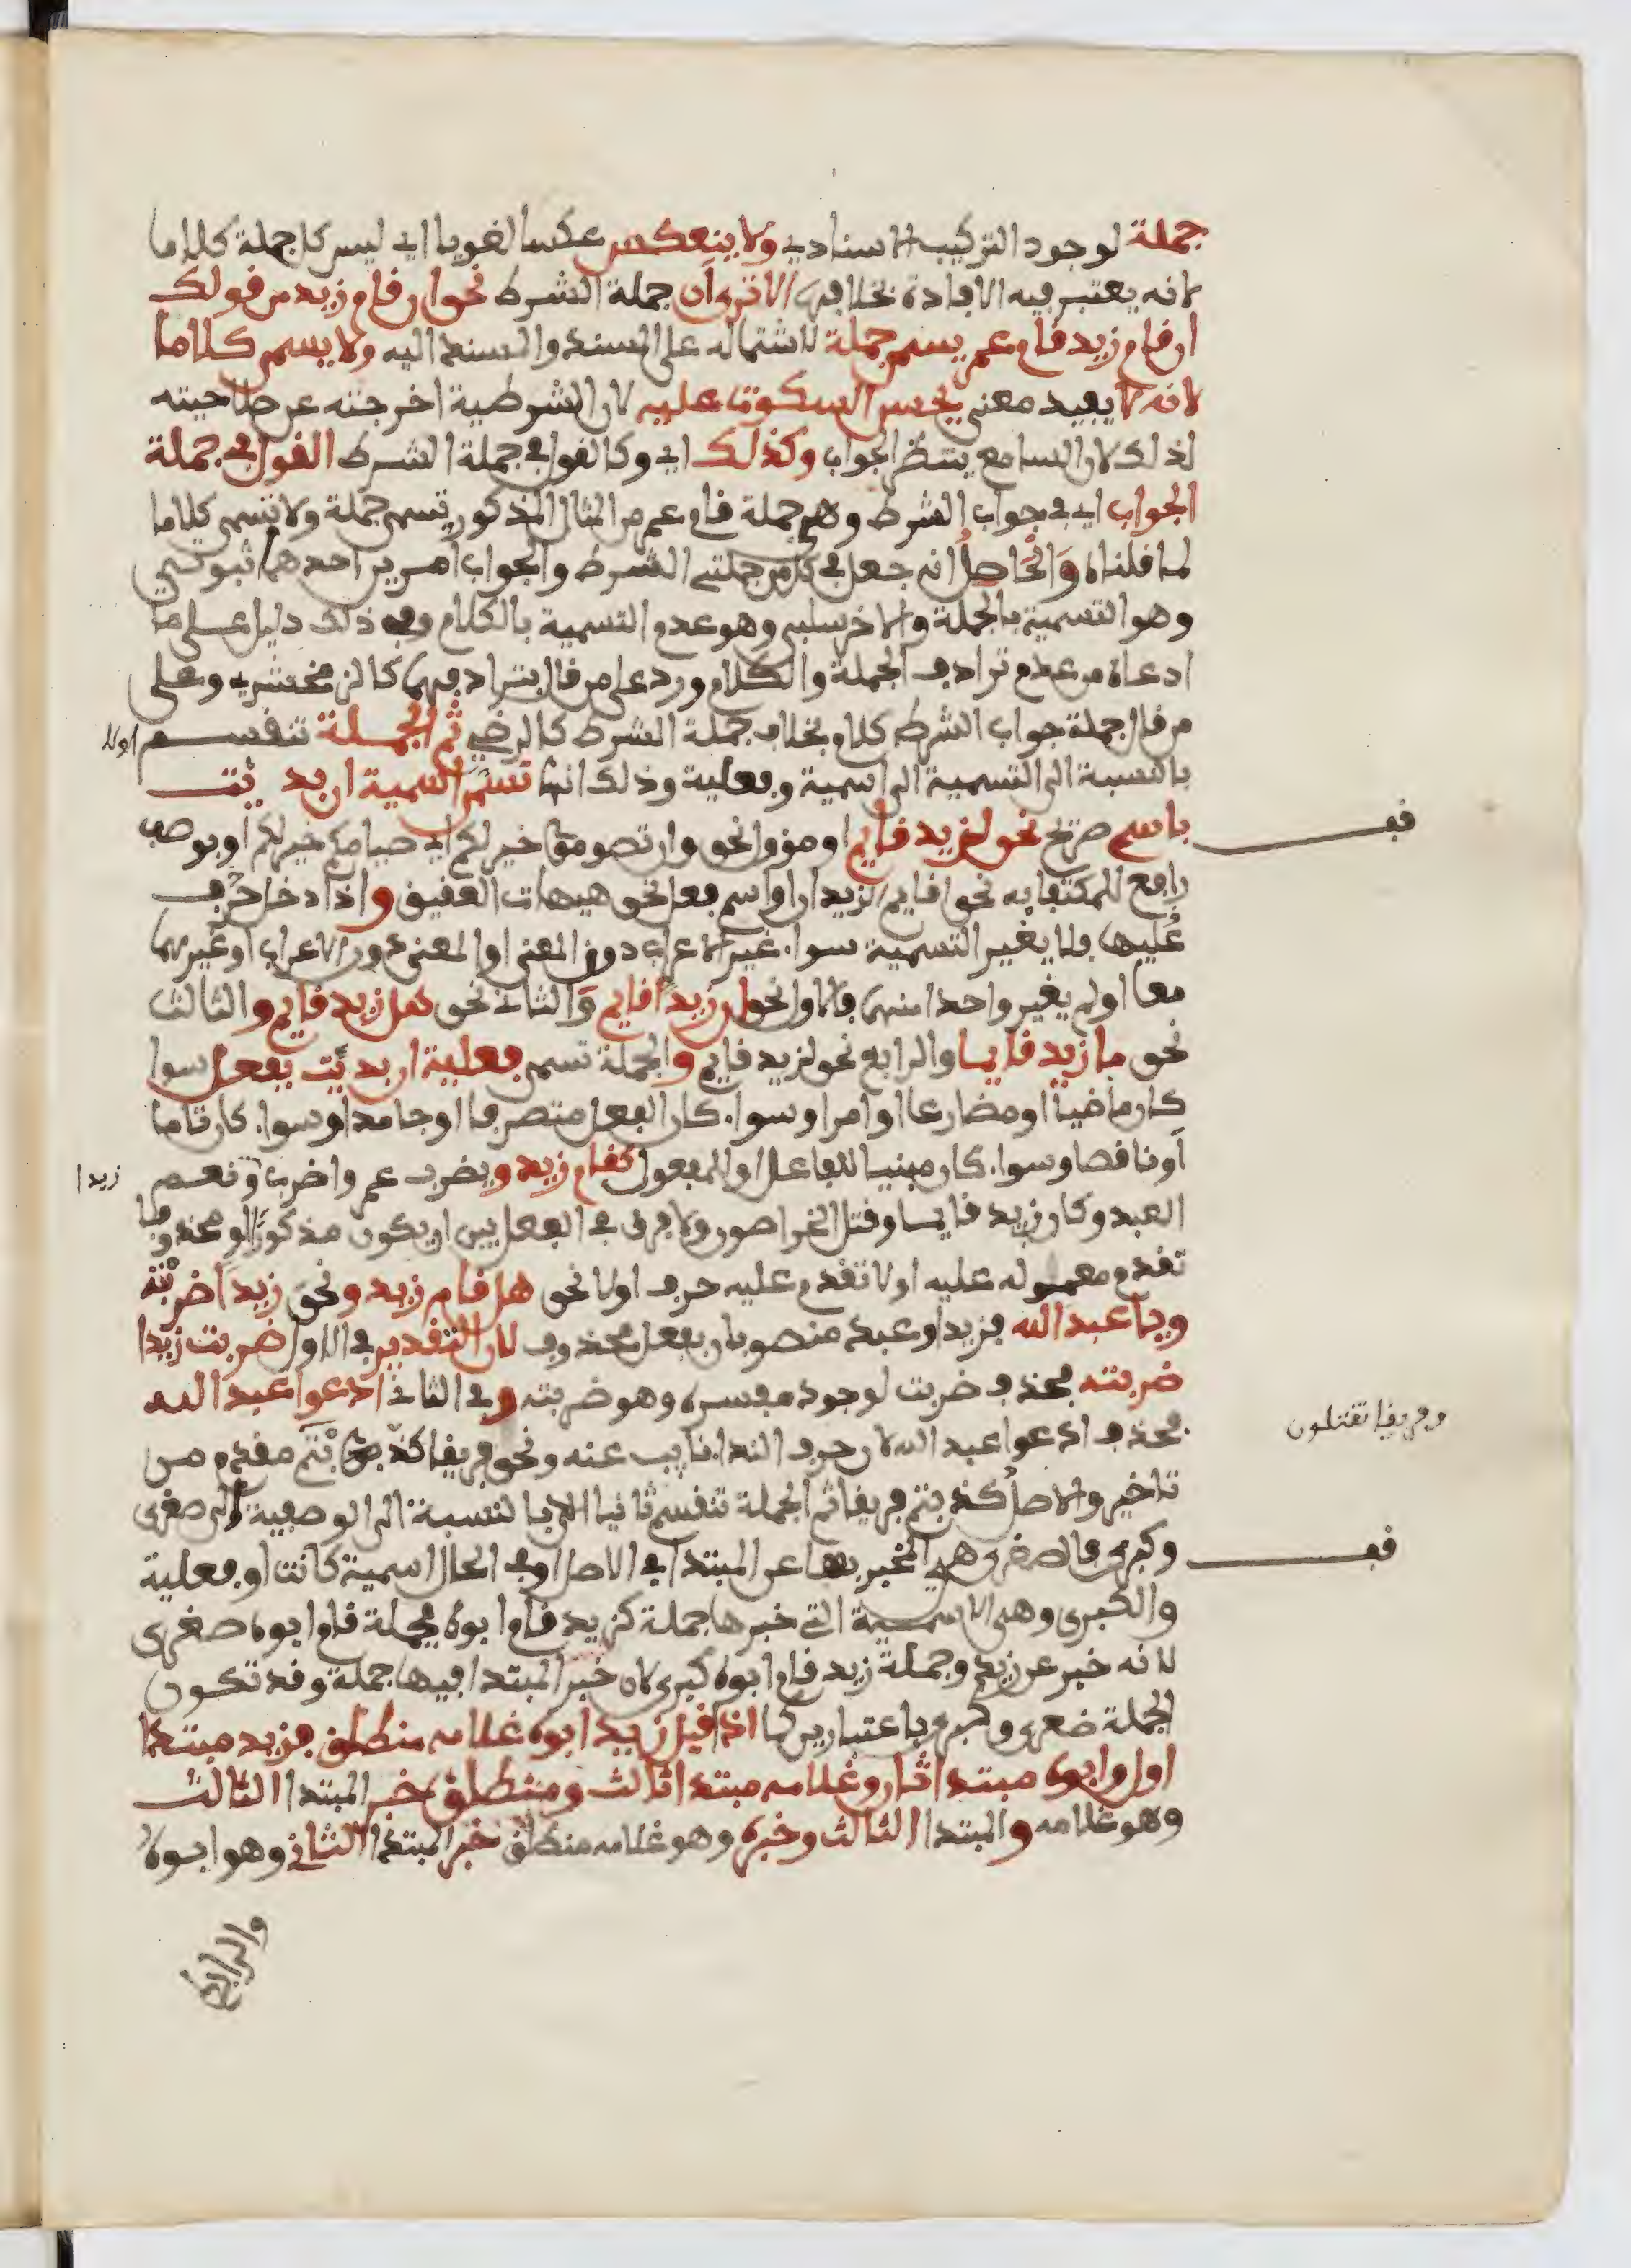 جملة لوجود التركيب الاسنادي ولا ينعكس عكسا لغويا اي ليس كل جملة كلاما
لانه يعتبر فيه الافادة بخلافها الا ترى أن جملة الشرط نحو ان قام زيد من قولك
ان قام زيد قام عمر يسمى جملة لاشتماله على المسند والمسند اليه ولا يسمى كلاما
لانه لا يفيد معنى يحسن السكوت عليه لان الشرطية اخرجته عن صلاحيته
لذلك لان السامع ينتظر الجواب وكذلك اي وكالقول في جملة الشرط القول في جملة
الجواب اي في جواب الشرط وهي جملة قام عمر من المثال المذكور تسمى جملة ولا تسمى كلاما
لما قلناه وَالْحاصلُ انه جعل في كل من جملتي الشرط والجواب امرين احدهما ثبوتي
وهو التسمية بالجملة والاخر سلبي وهو عدم التسمية بالكلام وفي ذلك دليل على ما
ادعاه من عدم ترادف الجملة والكلام ورد على من قال بترادفهما كالزمخشري وعلى
من قال جملة جواب الشرط كلام بخلاف جملة الشرط كالرضي ثم الجملة تنقسم اولا
بالنسبة الى التسمية الى اسمية وفعلية وذلك انها تسمى اسمية ان بدئت
باسم صريح نحو لزيد قايم او مؤول نحو وان تصوموا خير لكم اي صيامكم خير لكم او بوصف
رافع للمكتفا به نحو اقايم الزيدان او اسم فعل نحو هيهات العقيق واذا دخل حرف
عليها فلا يغير التسمية سوا غير الاعراب دون المعنى او المعنى دون الاعراب او غيرهما
معا او لم يغير واحدا منهما فالاول نحو ان زيدا قايم وَالثاني نحو هل زيد قايم والثالث
نحو ما زيد قايما والرابع نحو لزيد قايم والجملة تسمى فعلية ان بدئت بفعل سوا
كان ماضيا او مضارعا او امرا وسوا كان الفعل متصرفا او جامدا وسوا كان تاما
أو ناقصا وسوا كان مبنيا للفاعل او للمفعول كقام زيد ويضرب عمر واضرب زيدا ونعم
العبد وكان زيد قايما وقتل الخراصون ولا فرق في الفعل بين ان يكون مذكورا او محذوفا
تقدم معموله عليه او لا تقدم عليه حرف او لا نحو هل قام زيد ونحو زيدا ضربته
ويا عبد الله فزيدا وعبد منصوبان بفعل محذوف لان التقدير في الاول ضربت زيدا
ضربته فحذف ضربت لوجود مفسره وهو ضربته وفي الثاني ادعوا عبد الله
فحذف ادعوا عبد الله لان حرف الندا نايب عنه ونحو فريقا كذبتم مقدم من
وفريقا تقتلون
تاخير والاصل كذبتم فريقا ثم الجملة تنقسم ثانيا بالنسبة الى الوصفية الى صغرى
وكبرى فالصغرى هي المخبر بها عن المبتدا في الاصل او في الحال اسمية كانت او فعلية
والكبرى وهي الاسمية التي خبرها جملة كزيد قام ابوه فجملة قام ابوه صغرى
لانه خبر عن زيد وجملة زيد قام ابوه كبرى لان خبر المبتدا فيها جملة وقد تكون
الجملة صغرى وكبرى باعتبارين كما اذا قيل زيد ابوه غلامه منطلق فزيد مبتدا
اول وابوه مبتدا ثان وغلامه مبتدا ثالث ومنطلق خبر المبتدا الثالث
وهو غلامه والمبتدا الثالث وخبره وهو غلامه منطلق خبر المبتدا الثاني وهو ابوه